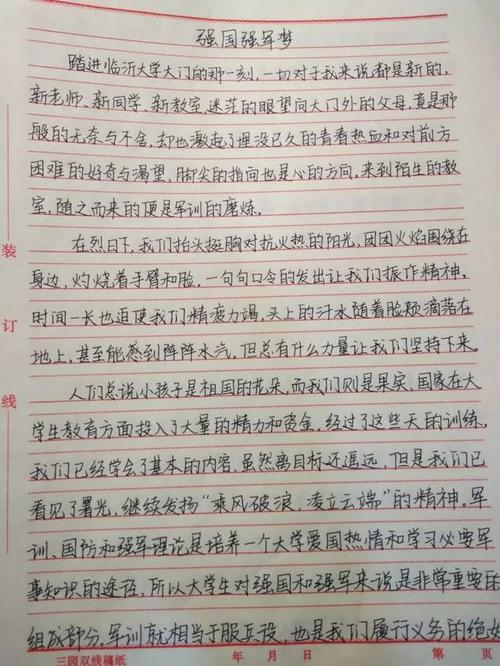 强国强军梦
踏进临沂大学大门的那一刻，一切对于我来说都是新的，
新老师、新同学、新教室，迷茫的眼望向大门外的父母，竟是那
般的无奈与不舍，却也激起了埋没已久的青春热血和对前方
困难的好奇与渴望，脚尖的指向也是心的方向，来到陌生的教
室，随之而来的顶是军训的磨炼。
在烈日下，我们抬头挺胸对抗火热的阳光，团团火焰围绕在
身边，灼烧着手臂和脸，一句句口令的发出让我们振作精神，
时间一长也迫使我们精疲力竭，头上的汗水随着脸颊滴落在
地上，甚至能感到阵阵水汽，但总有什么力量让我们坚持下来。
人们总说小孩子是祖国的花朵，而我们则是果实，国家在大
学生教育方面投入了大量的精力和资金，经过了这些天的训练，
我们已经学会了基本的内容，虽然离目标还遥远，但是我们已
看见了曙光，继续发扬“乘风破浪，凌立云端”的精神。军
训、国防和强军理论是培养一个大学爱国热情和学习必要军
事知识的途径，所以大学生对强国和强军来说是非常重要的
组成部分。军训就相当于服兵役，也是我们履行义务的绝
装
订
线
三园双线稿纸 年 月 日 第 页